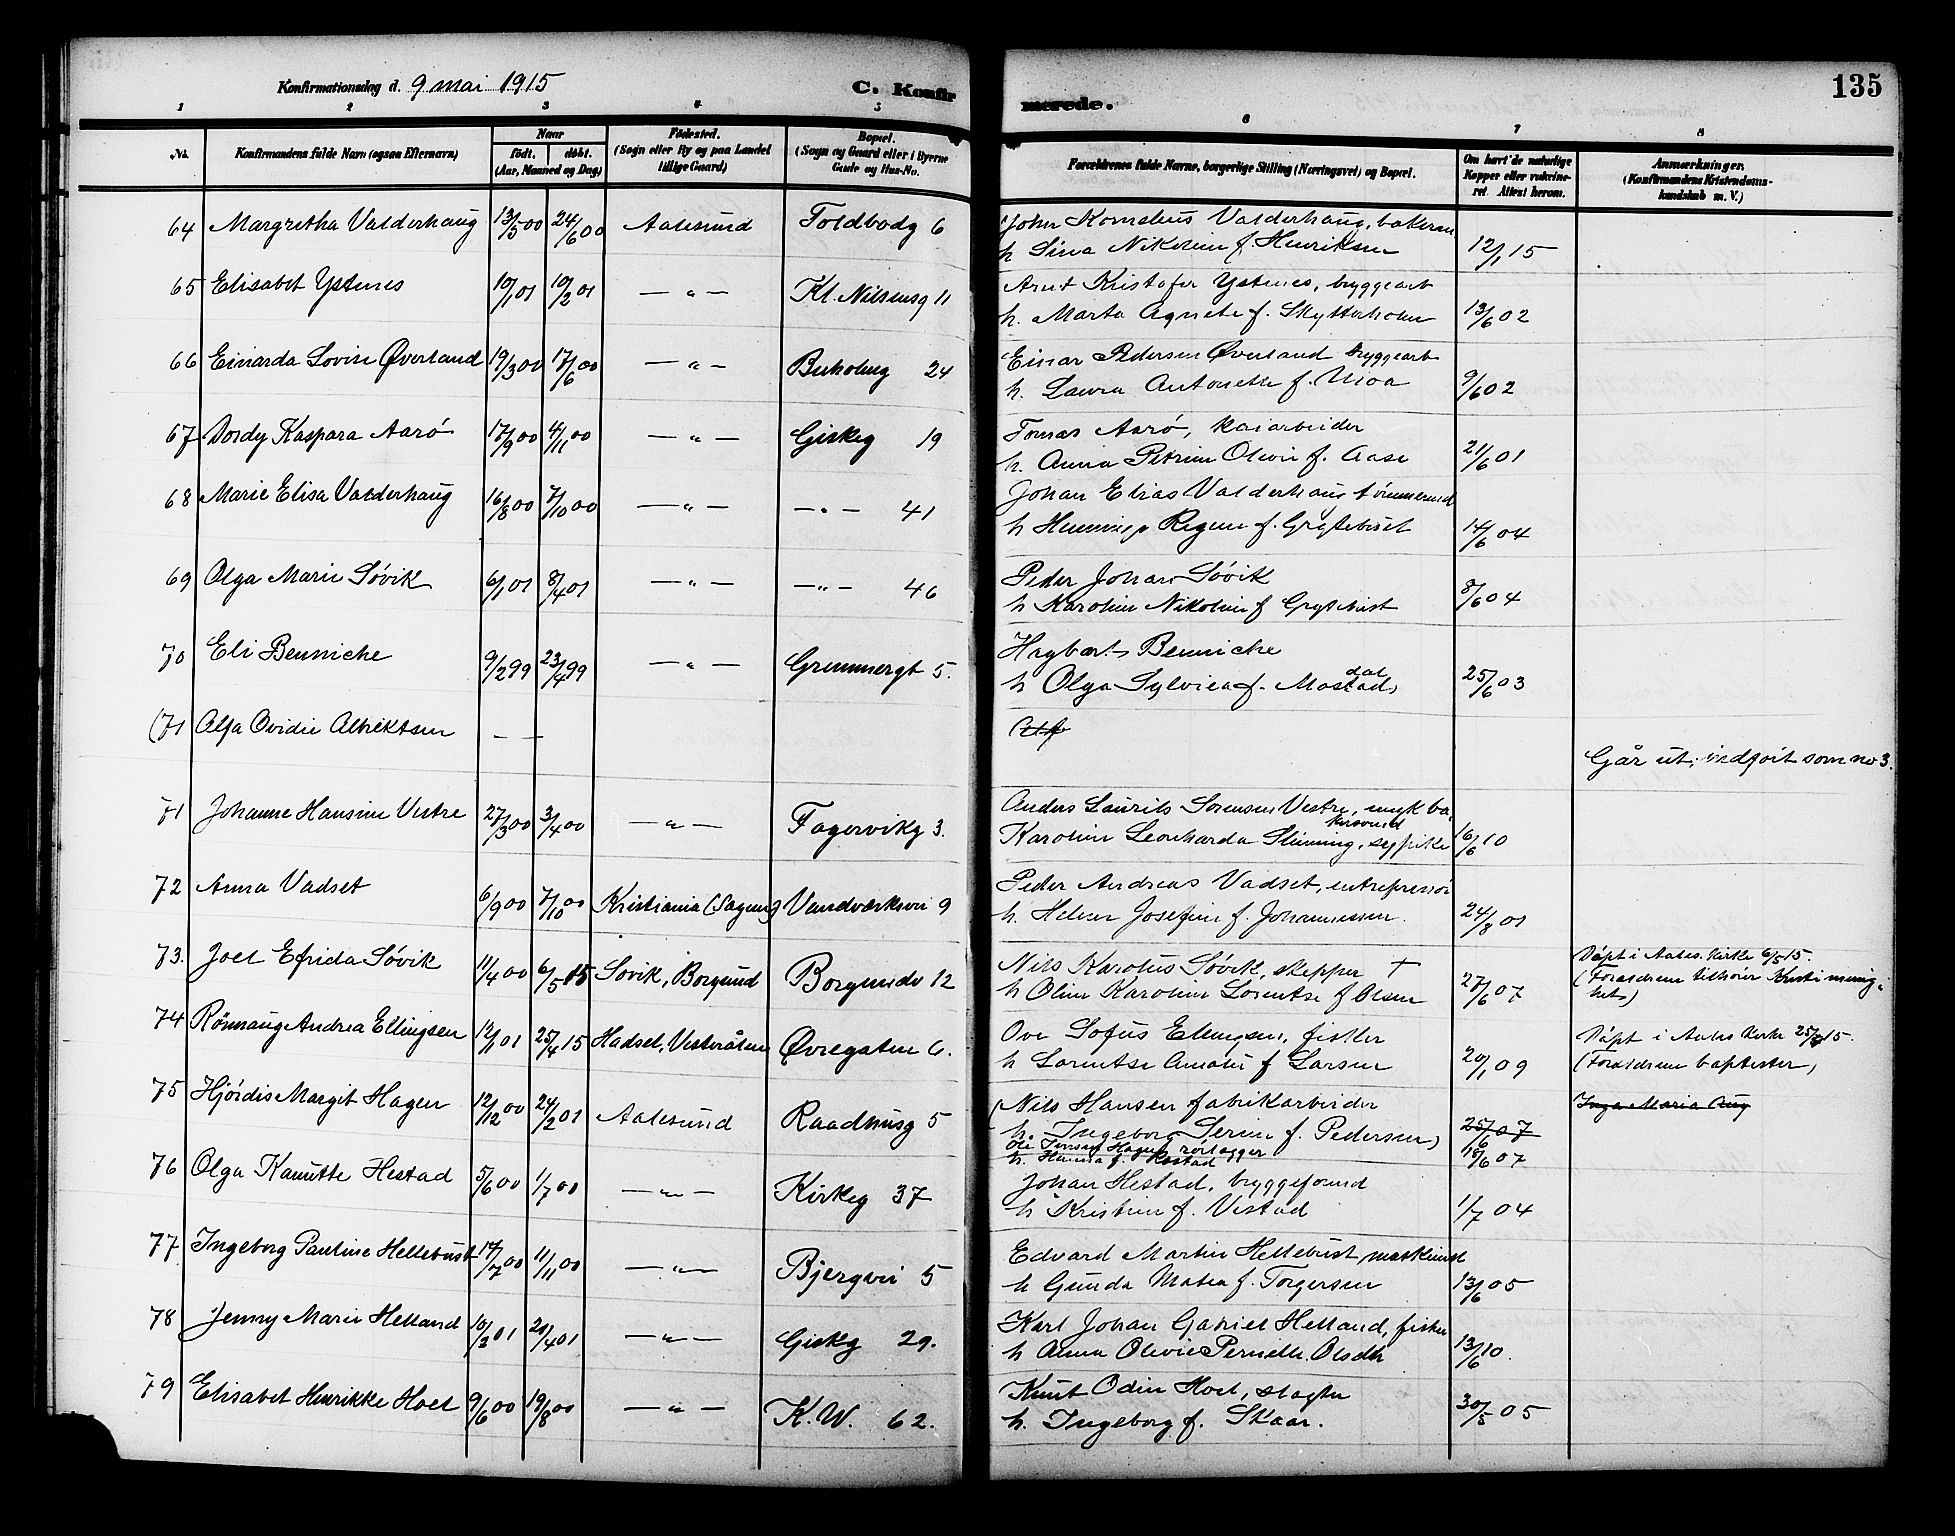 Konfirmationsdag d. 9 mai 1915
C. Konfirmerede.
135
1 2 3 4 5 6 7 8
No.
Konfirmandens fulde Navn (ogsaa Efternavn)
Naar
født. døbt.
(Aar, Maaned og Dag)
Fødested.
(Sogn eller By og paa Landet
tillige Gaard)
Bopæl.
(Sogn og Gaard eller i Byerne
Gade og Hus-No.
Forældrenes fulde Navne, borgerlige Stilling (Næringsvei) og Bopæl.
Om havt de naturlige
Kopper eller vakcine-
ret. Attest herom.
Anmærkninger,
(Konfirmandens Kristendoms-
kundskab m. V.)
64 Margretha Valderhaug 13/5 00 24/6 00 Aalesund Toldbodg 6
John Kornelius Valderhaug, bakersv
h. Sina Nikoline f. Henriksen 12/1 15
65 Elisabet Ystenes 10/1 01 10/2 01 — " — Kl. Nilseng 11
Arnt Kristofer Ystenes, bryggearb
h. Marta Agnete f. Skytterholm 13/6 02
66 Einarda Lovise Øverland 19/3 00 17/6 00 — " — Buholmg 24
Einar Pedersen Øverland bryggearb
h. Laura Antonette f. Moa 9/6 02
67 Dordy Kaspara Aarø 17/9 00 4/11 00 — " — Giskeg 19
Tomas Aarø, kaiarbeider
h. Anna Petrine Olivie f. Aase 21/6 01
68 Marie Elisa Valderhaug 16/8 00 7/10 00 — " — — " — 41
Johan Elias Valderhaug tømmermd
h Hennings Regine f. Grytebust 14/6 04
69 Olga Marie Søvik 6/1 01 8/4 01 — " — — " — 46
Peder Johan Søvik
h Karoline Nikoline f Grytebust 8/6 04
70 Eli Benniche 9/2 99 23/4 99 — " — Grimmergt 5.
Hagbart Benniche
h Olga Sylviea f. Mostad dal 25/6 03
(71 Alfa Ovidie Albrektsen — —
Går ut, indført som no 3.
71 Johanne Hansine Vestre 27/3 00 3/4 00 — " — Fagervikg 3.
Anders Laurits Sørensen Vestre, ungk ba-
kersvend
Karoline Leonharda Slinning, sypike 16/6 10
72 Anna Vadset 6/9 00 7/10 00 Kristiania (Sagene) Vandværksvei 9
Peder Andreas Vadset, entreprenør
h. Helene Josefine f. Johannessen. 24/8 01
73. Joel Efrida Søvik 11/4 00 6/5 15 Søvik, Borgund Borgundv 12
Nils Karolus Søvik, skipper †
h Oline Karoline Lorentse f Olsen 27/6 07
Døpt i Aales. kirke 6/5 15.
(Forældrene tilhører Kristi menig-
het)
74 Rønnaug Andrea Ellingsen 12/1 01 25/4 15 Hadsel, Vesterålen Øvregaten 6.
Ove Sofus Ellingsen, fisker
h Lorentse Amalie f Larsen 20/1 09
Døpt i Aales kirke 25/4 15.
(Forældrene baptister)
75 Hjørdis Margit Hagen 12/12 00 24/2 01 Aalesund Raadhusg 5
(Nils Hansen fabrikarbeider
h. Ingeborg Serine f. Pedersen) 25/6 07
Ole Jensen Hagen rørlægger
h. Hanna f. Røstad 18/6 07
Inga Maria Aug
76 Olga Kanutte Hestad 5/6 00 1/7 00 — " — Kirkeg 37
Johan Hestad, bryggeformd
h Kristine f. Vestad 1/7 04
77 Ingeborg Pauline Hellebust 14/7 00 11/11 00 — " — Bjergvei 5
Edvard Martin Hellebust maskinist
h Gunda Matea f. Torgersen 13/6 05
78 Jenny Marie Helland 10/2 01 21/4 01 — " — Giskg 29.
Karl Johan Gabriel Helland, fisker
h Anna Olivie Pernelle Olsdtr 13/6 10.
79 Elisabet Henrikke Hoel 9/6 00 19/8 00 — " — K. W. 62.
Knut Odin Hoel, slagter
h. Ingeborg f. Skaar. 30/5 05